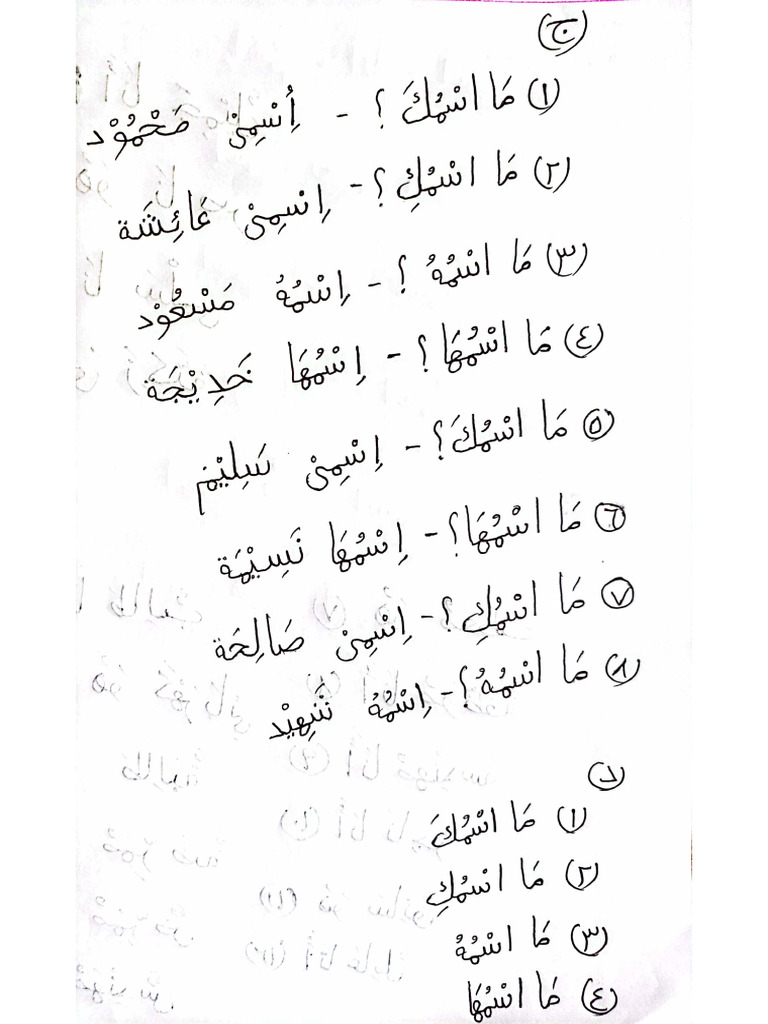 (ج)
(١) مَا اسْمُكَ؟ - أُسْمِيْ مَحْمُوْد
(٢) مَا اسْمُكِ؟ - اِسْمِيْ عَائِشَة
(٣) مَا اسْمُهُ؟ - اِسْمُهُ مَسْعُوْد
(٤) مَا اسْمُهَا؟ - اِسْمُهَا خَدِيْجَة
(٥) مَا اسْمُكَ؟ - اِسْمِيْ سَلِيْم
(٦) مَا اسْمُهَا؟ - اِسْمُهَا نَسِيْمَة
(٧) مَا اسْمُكِ؟ - اِسْمِيْ صَالِحَة
(٨) مَا اسْمُهُ؟ - اِسْمُهُ
(د)
(١) مَا اسْمُكَ
(٢) مَا اسْمُكِ
(٣) مَا اسْمُهُ
(٤) مَا اسْمُهَا